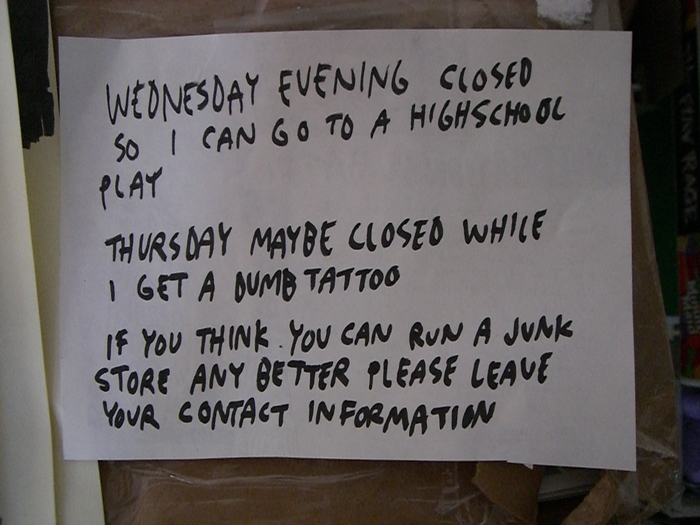 WEDNESDAY EVENING CLOSED
SO I CAN GO TO A HIGHSCHOOL
PLAY
THURSDAY MAYBE CLOSED WHILE
I GET A DUMB TATTOO
IF YOU THINK. YOU CAN RUN A JUNK
STORE ANY BETTER PLEASE LEAVE
YOUR CONTACT INFORMATION